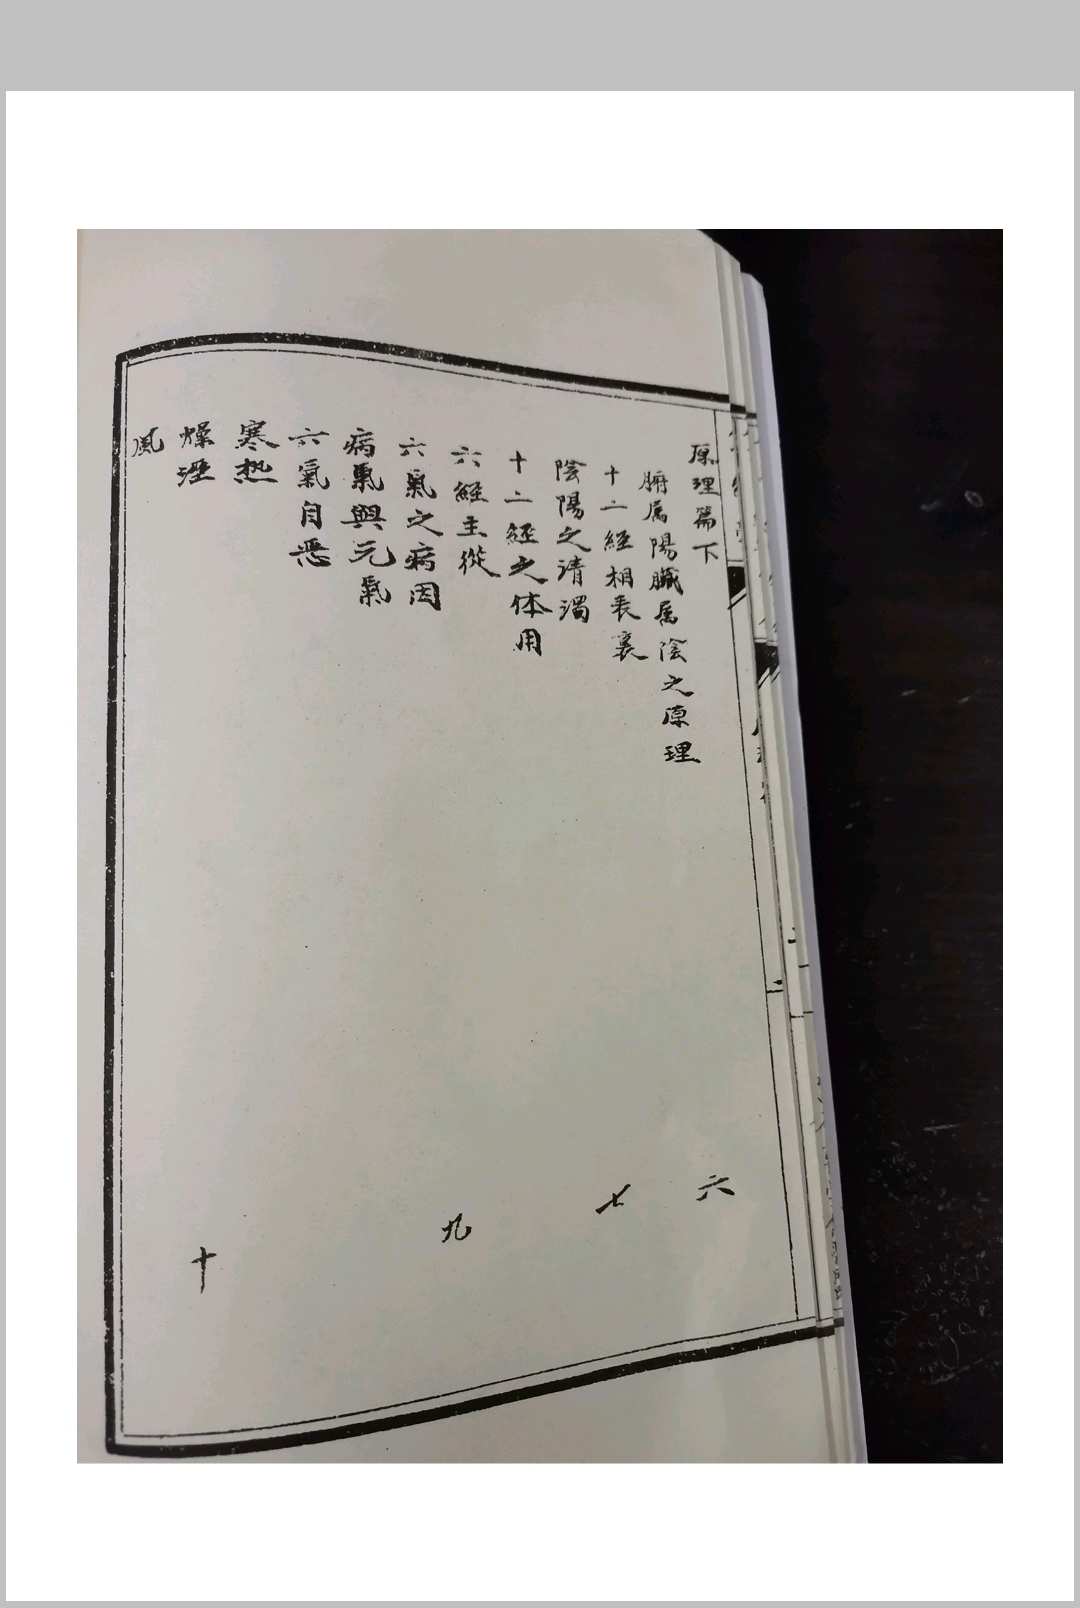 原理篇下 六
腑属陽臟属陰之原理
十二經相表裏 七
陰陽之清濁
十二經之体用
六經主從 九
六氣之病因
病氣與元氣
六氣自惡
寒热
燥溼 十
風